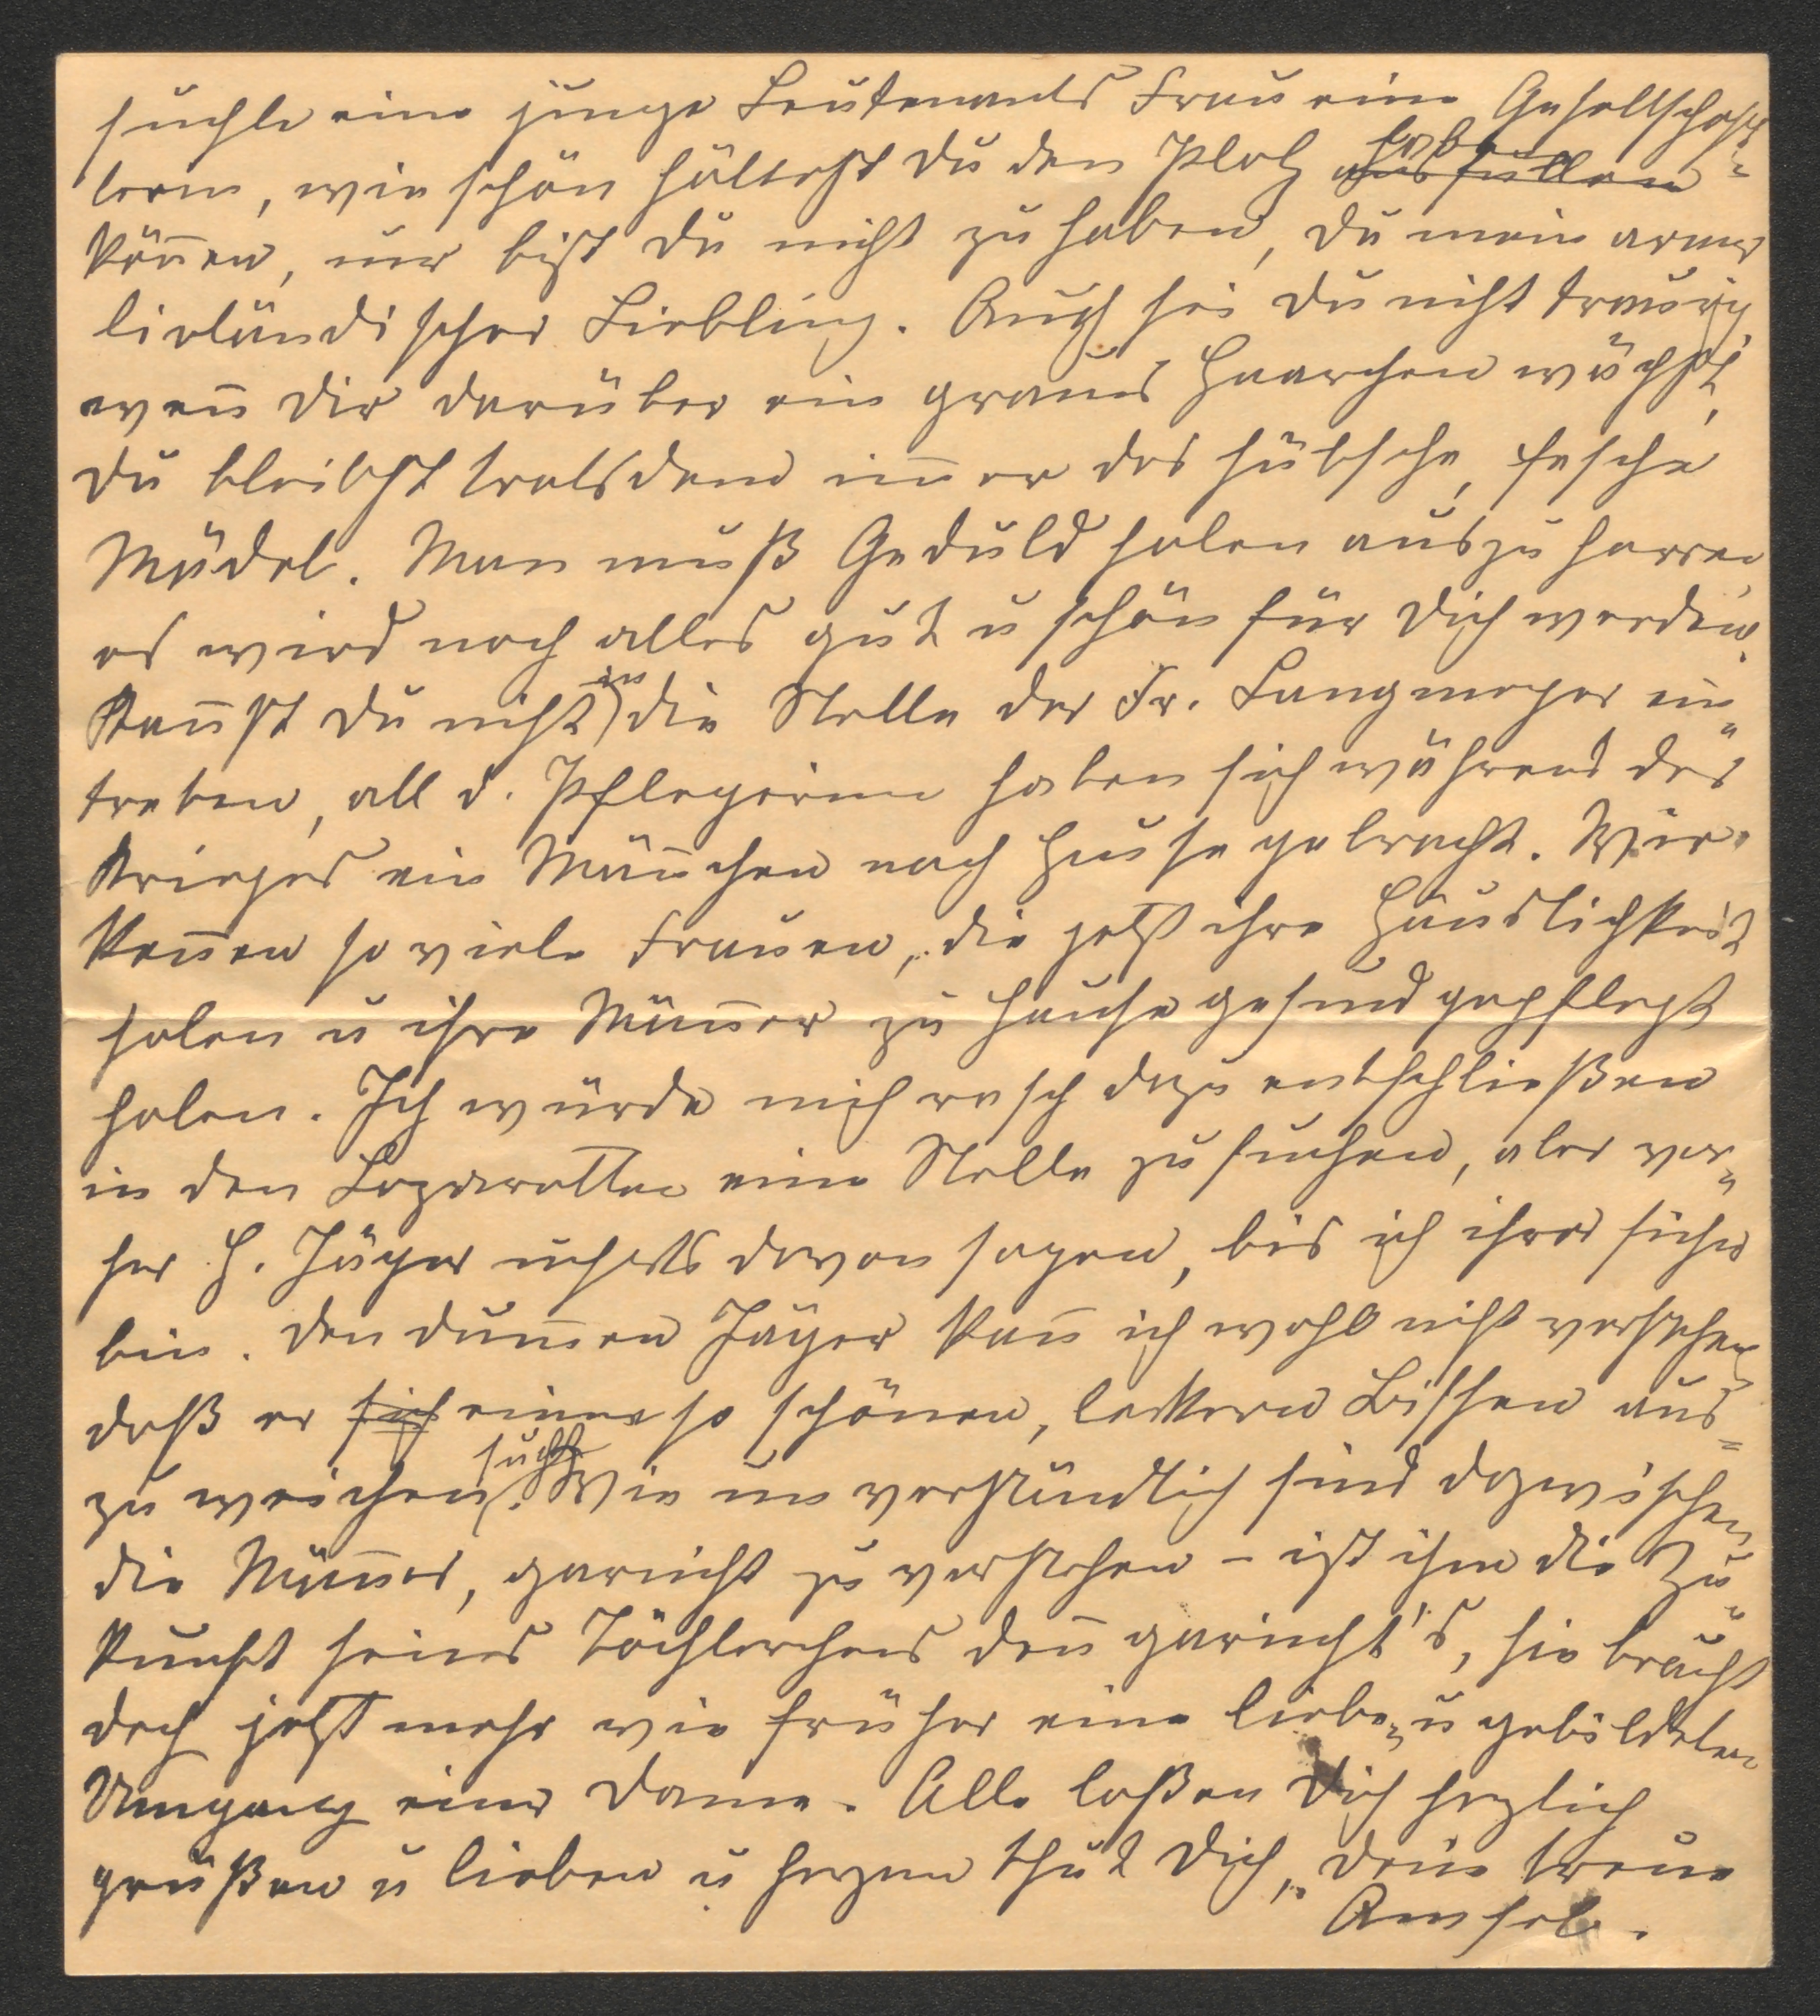 suchte eine junge Leutenants Frau eine Gesellschaf-
terin, wie schön hättest Du den Platz ausfüllen haben
können, nur bist Du nicht zu haben, Du mein armer
livländischer Liebling. Auch sei Du nicht traurig,
wenn Dir darüber ein graues Haarchen wächst,
Du bleibst trotsdem immer das hübsche, fesche
Mädel. Man muß Geduld haben auszuharren,
es wird noch alles gut u schön für Dich werden.
Kannst Du nicht in die Stelle der Fr. Langmeyer ein-
treten, all d. Pflegerinen haben sich während des
Krieges ein Männchen nach Hause gebracht. Wir
kennen so viele Frauen, die jetzt ihre Häuslichkeit
haben u ihre Männer zu Hause gesund gepflegt
haben. Ich würde mich rasch dazu entschließen
in den Lazaretten eine Stelle zu suchen, aber vor-
her H. Jäger nichts davon sagen, bis ich ihrer sicher
bin. Den dummen Jäger kann ich wohl nicht verstehen,
daß er sich einen so schönen, leckern Bissen aus-
zuweichen sucht. Wie unverständlich sind dazwischen
die Männer, garnicht zu verstehen – ist ihm die Zu-
kunft seines Töchterchens denn garnicht's, sie braucht
doch jetzt mehr wie früher eine lieben u gebildeten
Umgang einer Dame. Alle laßen Dich herzlich
grüßen u lieben u herzen thut Dich, Deine treue
Amsel.